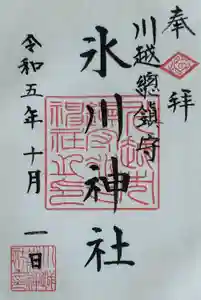 奉拝
川越總鎮守
氷川神社
令和五年十月一日